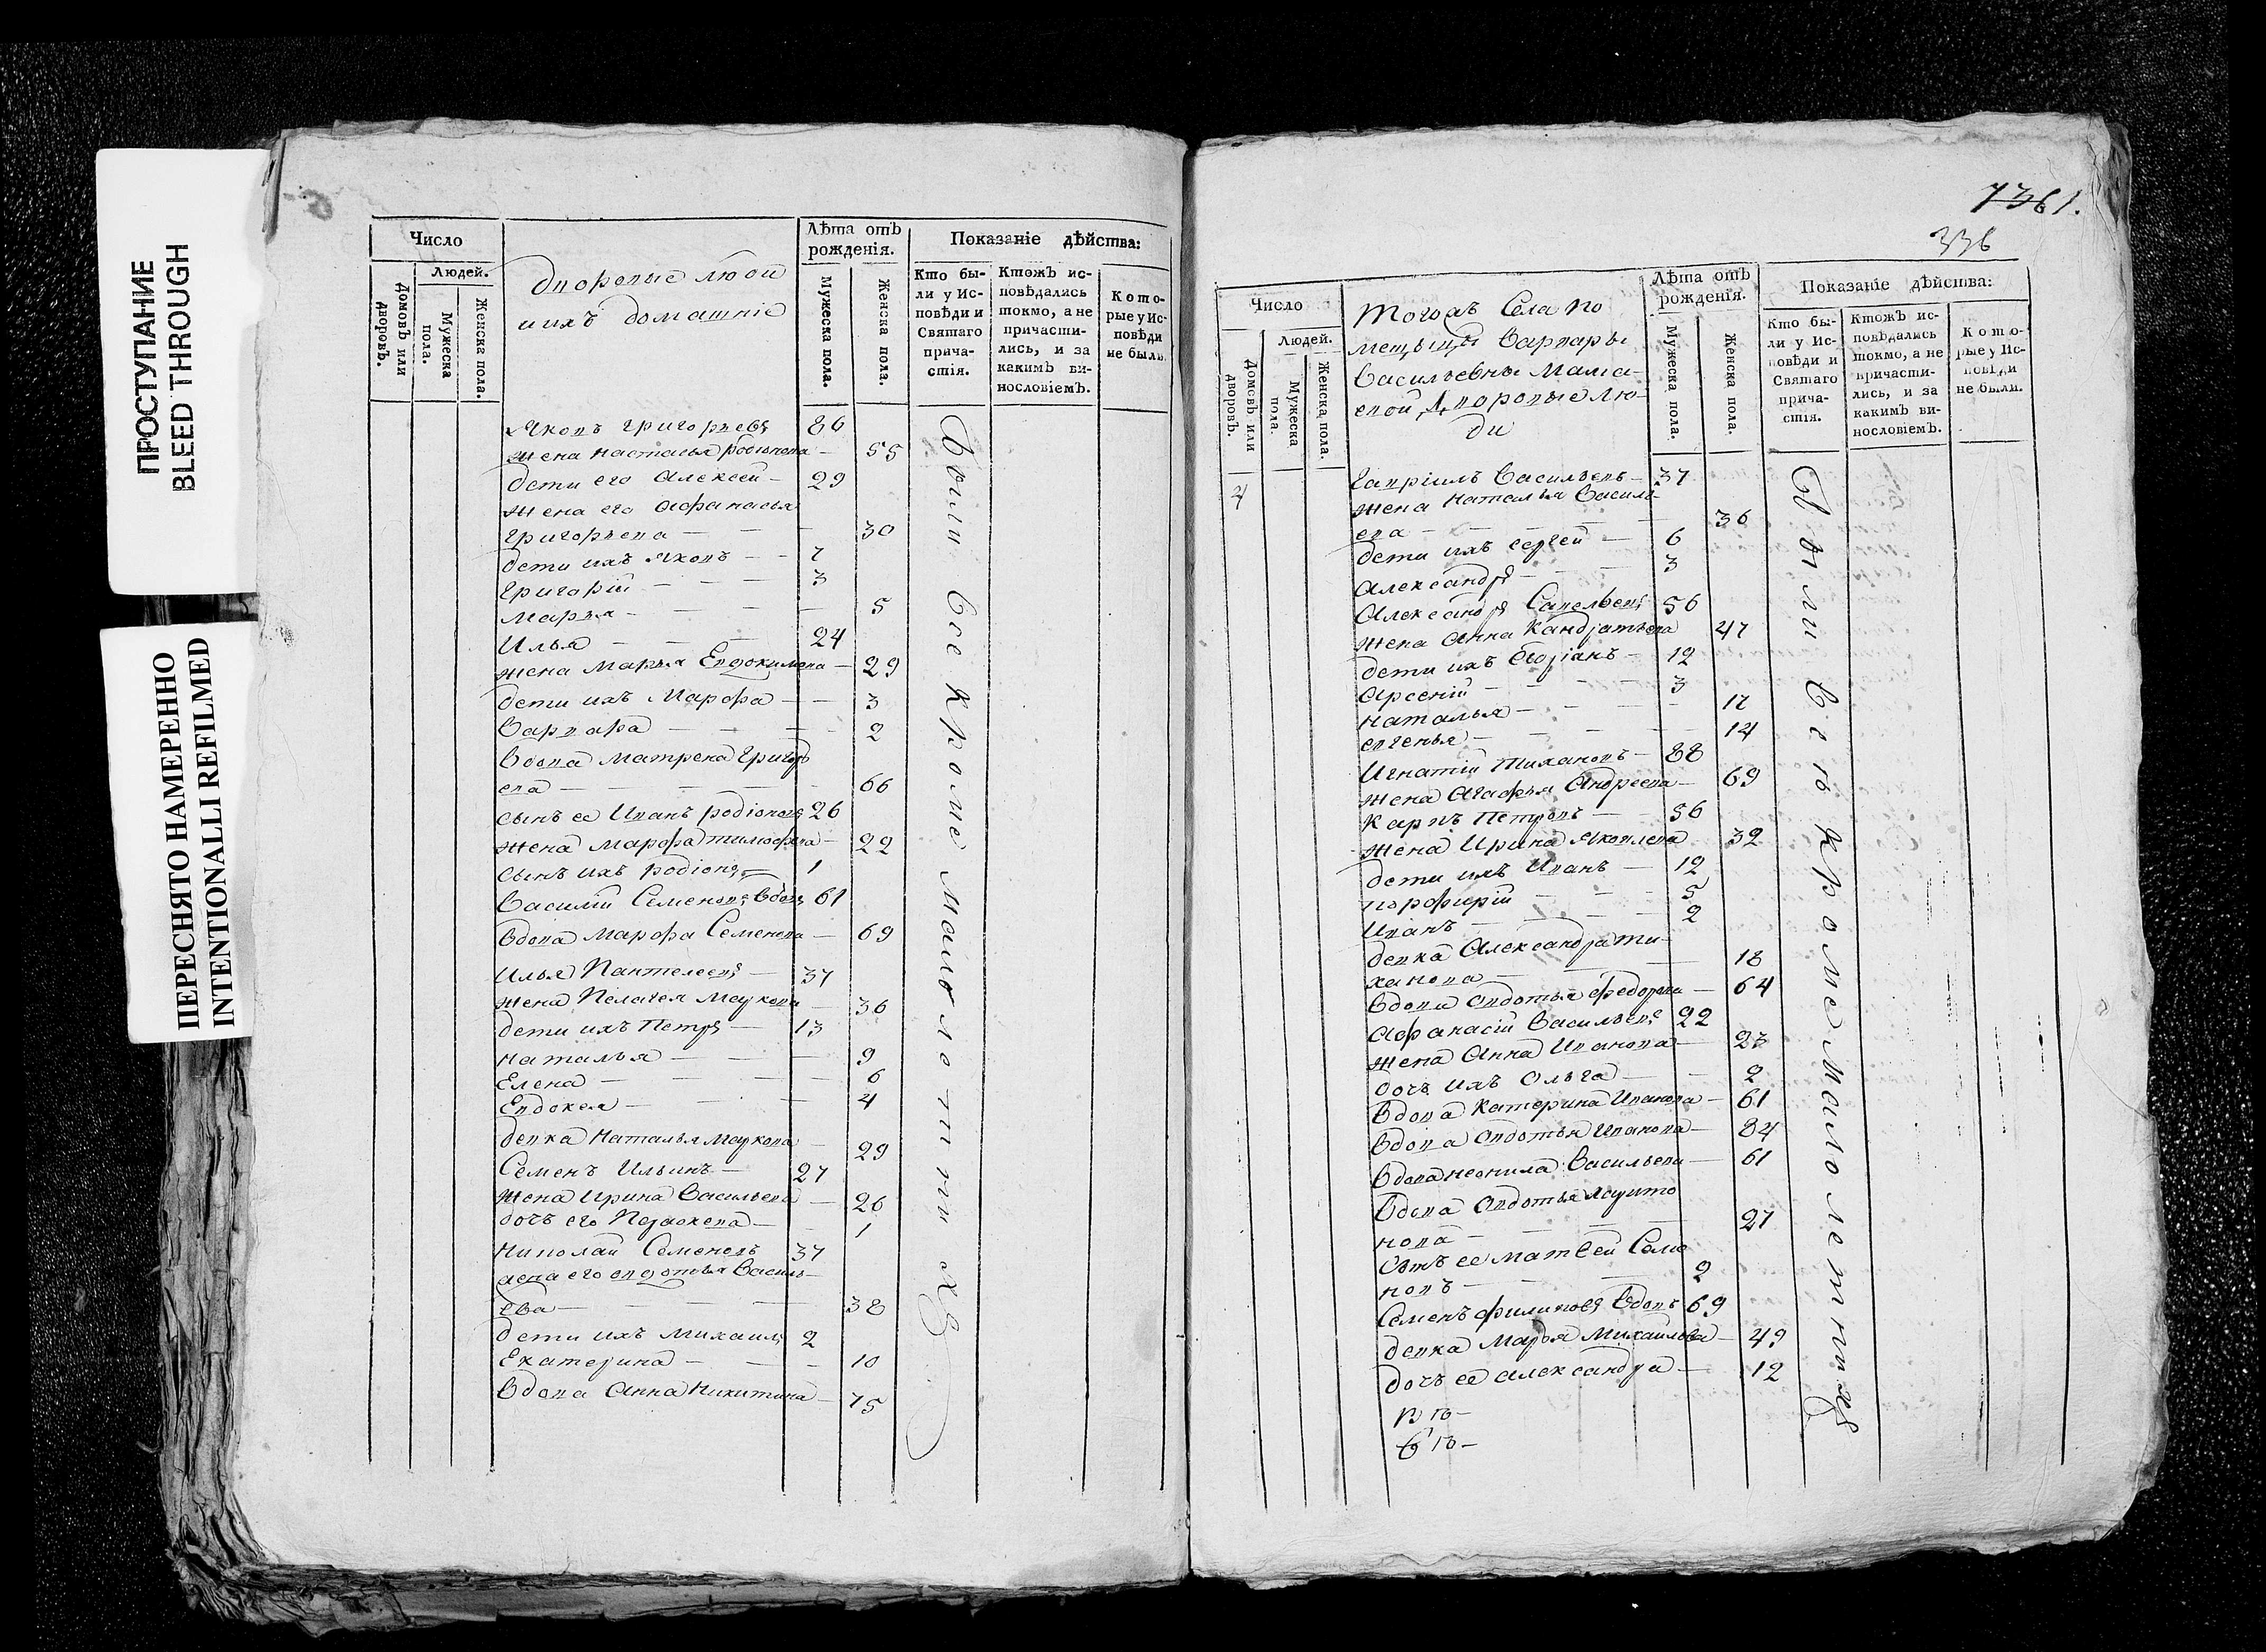 ПРОСТУПАНИЕ
BLEED THROUGH
ПЕРЕСНЯТО НАМЕРЕННО
INTENTIONALLI REFILMED
Число
Людей.
Домовъ или дворовъ.
Мужеска пола.
Женска пола.
дворовые люди
ихъ домашніе
Лѣта отъ рожденія.
Мужеска пола.
Женска пола.
Показаніе дѣйства:
Кто были у Исповѣди и Святаго причастія.
Ктожъ исповѣдались токмо, а не причастились, и за какимъ винословіемъ.
Которые у Исповѣди не были.
Яковъ Григорьевъ 86
жена Наталья Родіонова 55
дети его Алексей 29
жена его Афанасья
Григорьева 30
дети ихъ Яковъ 7
Григорій 3
Марья 5
Илья 24
жена Марья Евдокимова 29
дети ихъ Марфа 3
Варвара 2
вдова Матрена Григорь
ева 66
сынъ ее Иванъ Родіоновъ 26
жена Марфа Тимофева 22
сынъ ихъ Родіонъ 1
Василій Семеновъ вдовъ 61
вдова Марфа Семенова 69
Илья Пантелеевъ 37
жена Пелагея Маркова 36
дети ихъ Петръ 13
Наталья 9
Елена 6
Евдокея 4
девка Наталья Маркова 29
Семенъ Ильинъ 27
жена Ирина Васильева 26
дочь его Парасковева 1
Николай Семеновъ 37
жена его Овдотья Василь
ева 38
дети ихъ Михаилъ 2
Екатерина 10
вдова Анна Никитина 75
Были все кроме малолетнихъ
7361.
336
Число
Людей.
Домовъ или дворовъ.
Мужеска пола.
Женска пола.
Тогожъ Села по
мещицы Варвары
Васильевны
дворовые лю
ди
Лѣта отъ рожденія.
Мужеска пола.
Женска пола.
Показаніе дѣйства:
Кто были у Исповѣди и Святаго причастія.
Ктожъ исповѣдались токмо, а не причастились, и за какимъ винословіемъ.
Которые у Исповѣди не были.
4
Гавріилъ Васильевъ 37
жена Наталья Василь
ева 36
дети ихъ Сергей 6
Александръ 3
Александръ Савельевъ 56
жена Анна Кандратьева 47
дети ихъ 12
Арсеній 3
Наталья 17
Евгенья 14
Игнатій Тихановъ 88
жена Агафья Андреева 69
Карпъ Петровъ 56
жена Ирина Яковлева 32
дети ихъ Иванъ 12
Порфирій 5
Иванъ 2
девка Александра Ти
ханова 18
вдова Овдотья Федорова 64
Афанасій Васильевъ 22
жена Анна Иванова 23
дочь ихъ Ольга 2
вдова Катерина Иванова 61
вдова Овдотья Иванова 84
вдова Неонила Васильева 61
вдова Овдотья Харито
нова 27
сынъ ее Матвей Семе
новъ 2
Семенъ Филиповъ вдовъ 69
девка Марья Михайлова 49
дочь ее Александра 12
Были все кроме малолетнихъ